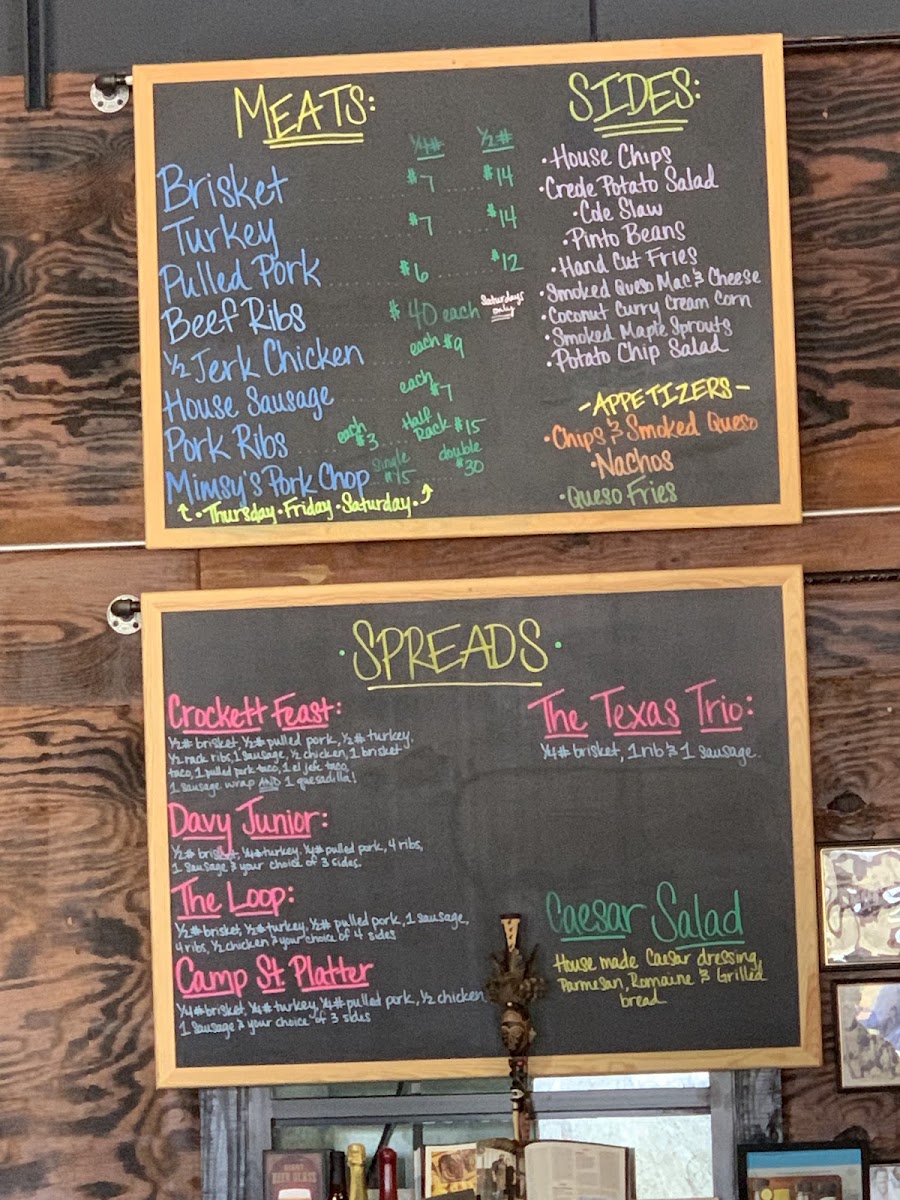 MEATS:
¼# ½#
Brisket $7 $14
Turkey $7 $14
Pulled Pork $6 $12
Beef Ribs $40 each Saturdays only
½ Jerk Chicken each $9
House Sausage each $7
Pork Ribs each $3 Half Rack $15
Mimsy's Pork Chop single $15 double $30
• Thursday • Friday • Saturday •
SIDES:
• House Chips
• Creole Potato Salad
• Cole Slaw
• Pinto Beans
• Hand Cut Fries
• Smoked Queso Mac & Cheese
• Coconut Curry Cream Corn
• Smoked Maple Sprouts
• Potato Chip Salad
- APPETIZERS -
• Chips & Smoked Queso
• Nachos
• Queso Fries
• SPREADS •
Crockett Feast:
½# brisket, ½# pulled pork, ½# turkey,
½ rack ribs, 1 sausage, ½ chicken, 1 brisket
taco, 1 pulled pork taco, 1 el jefe taco,
1 sausage wrap AND 1 quesadilla!
Davy Junior:
½# brisket, ¼# turkey, ¼# pulled pork, 4 ribs,
1 sausage & your choice of 3 sides.
The Loop:
½# brisket, ½# turkey, ½# pulled pork, 1 sausage,
4 ribs, ½ chicken & your choice of 4 sides
Camp St. Platter
¼# brisket, ¼# turkey, ¼# pulled pork, ½ chicken,
1 sausage & your choice of 3 sides
The Texas Trio:
¼# brisket, 1 rib & 1 sausage.
Caesar Salad
House made Caesar dressing,
Parmesan, Romaine & Grilled
bread
BEER GLASS